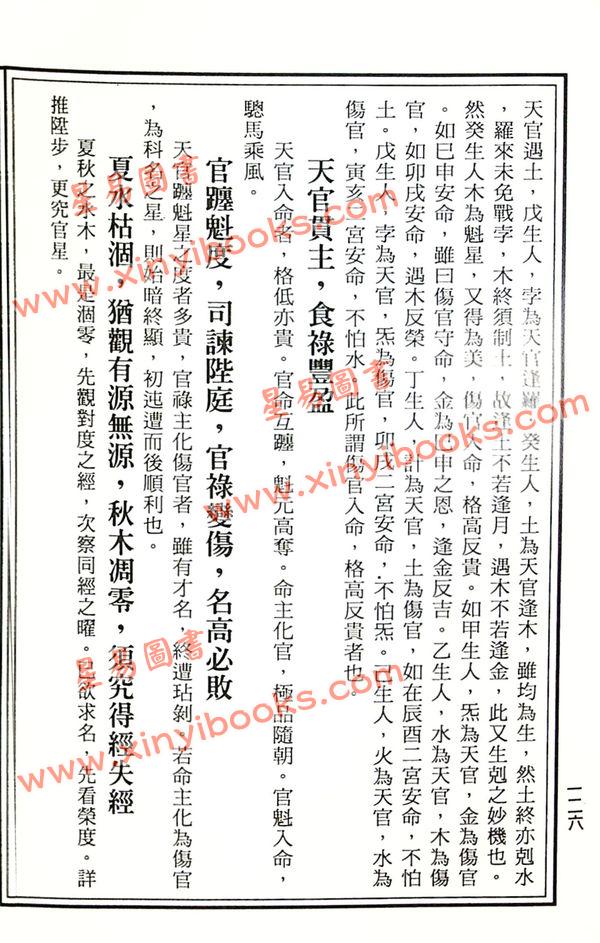 天官遇土，戊生人，孛為天官逢羅，癸生人，土為天官逢木，雖均為生，然土終亦剋水
，羅來未免戰孛，木終須制土，故逢土不若逢月，遇木不若逢金，此又生剋之妙機也。
然癸生人木為魁星，又得為美，傷官入命，格高反貴。如甲生人，炁為天官，金為傷官
。如巳申安命，雖曰傷官守命，金為巳申之恩，逢金反吉。乙生人，水為天官，木為傷
官，如卯戌安命，遇木反榮。丁生人，計為天官，土為傷官，如在辰酉二宮安命，不怕
土。戊生人，孛為天官，炁為傷官，卯戌二宮安命，不怕炁。丙生人，火為天官，水為
傷官，寅亥二宮安命，不怕水。此所謂傷官入命，格高反貴者也。
天官貫主，食祿豐盈
天官入命者，格低亦貴。官命互躔，魁元高奪。命主化官，極品隨朝。官魁入命，
驄馬乘風。
官躔魁度，司諫陛庭，官祿變傷，名高必敗
天官躔魁星之度者多貴，官祿主化傷官者，雖有才名，終遭玷剝，若命主化為傷官
，為科名之星，則始暗終顯，初迍遭而後順利也。
夏水枯涸，猶觀有源無源，秋木凋零，須究得經失經
夏秋之水木，最是涸零，先觀對度之經，次察同經之曜。已欲求名，先看榮度。詳
推陞步，更究官星。
一二六
星易圖書
www.xinyibooks.com
星易圖書
www.xinyibooks.com
星易圖書
www.xinyibooks.com